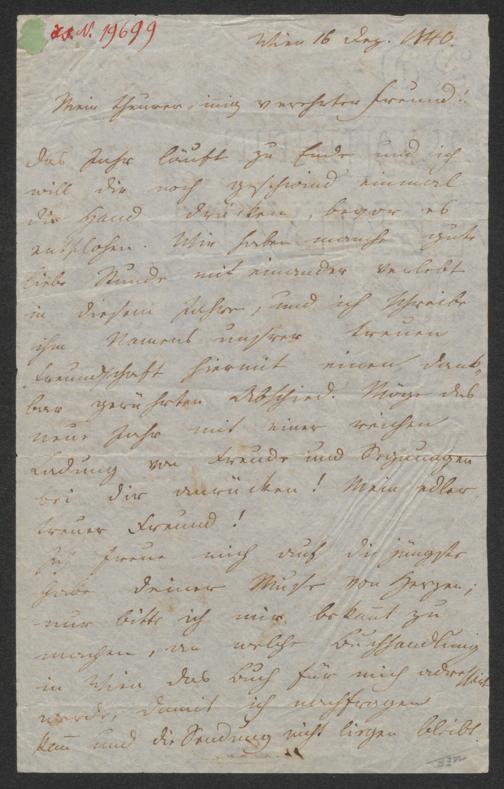 J. N. 19699
Wien 16 Dez. 1840.
Mein theurer, innig verehrter Freund!
Das Jahr läuft zu Ende und ich
will dir noch geschwind einmal
die Hand drücken, bevor es
entflohen. Wir haben manche gute
liebe Stunde mit einander verlebt
in diesem Jahre, und ich schreibe
ihm Namens unsrer treuen
Freundschaft hiermit einen dank-
bar gerührten Abschied. Möge das
neue Jahr mit einer reichen
Ladung von Freude und Segnungen
bei dir anrücken! Mein edler
treuer Freund!
Ich freue mich auf die jüngste
Gabe deiner Muse von Herzen;
nur bitte ich mir bekannt zu
machen, an welche Buchhandlung
in Wien das Buch für mich adressirt
werde, damit ich nachfragen
kann und die Sendung nicht liegen bleibt.